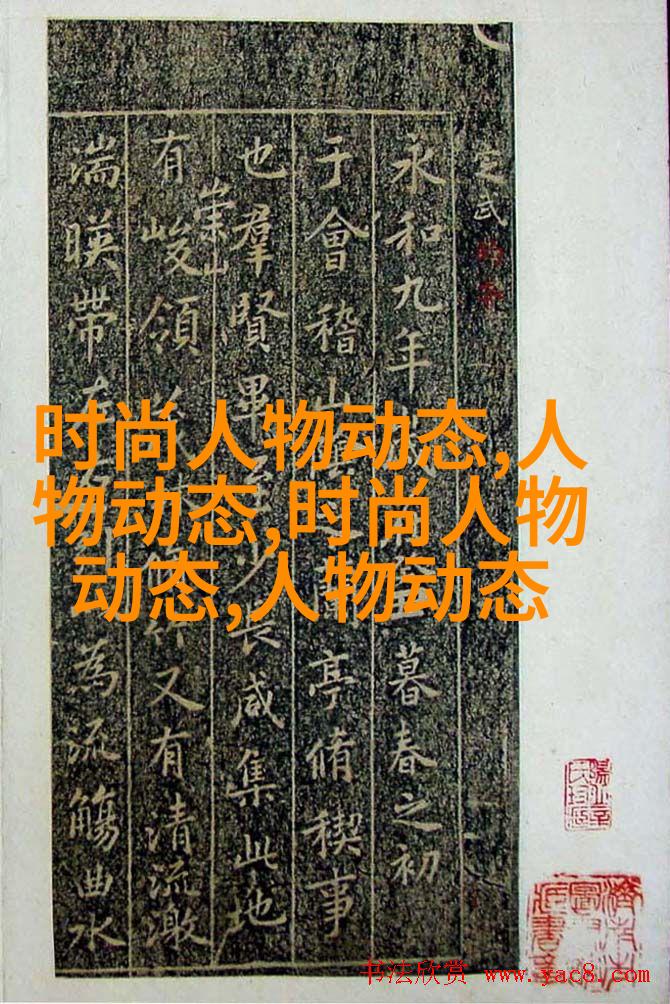 定武
永和九年暮春之初
于會稽山蘭亭脩稧事
也羣賢畢至少長咸集此地
有崇山峻領茂脩竹又有清流激
湍暎帶左為流觴曲水
时尚人物动态,人
物动态,时尚人物
动态,人物动态
书法欣赏 www.yac8.com